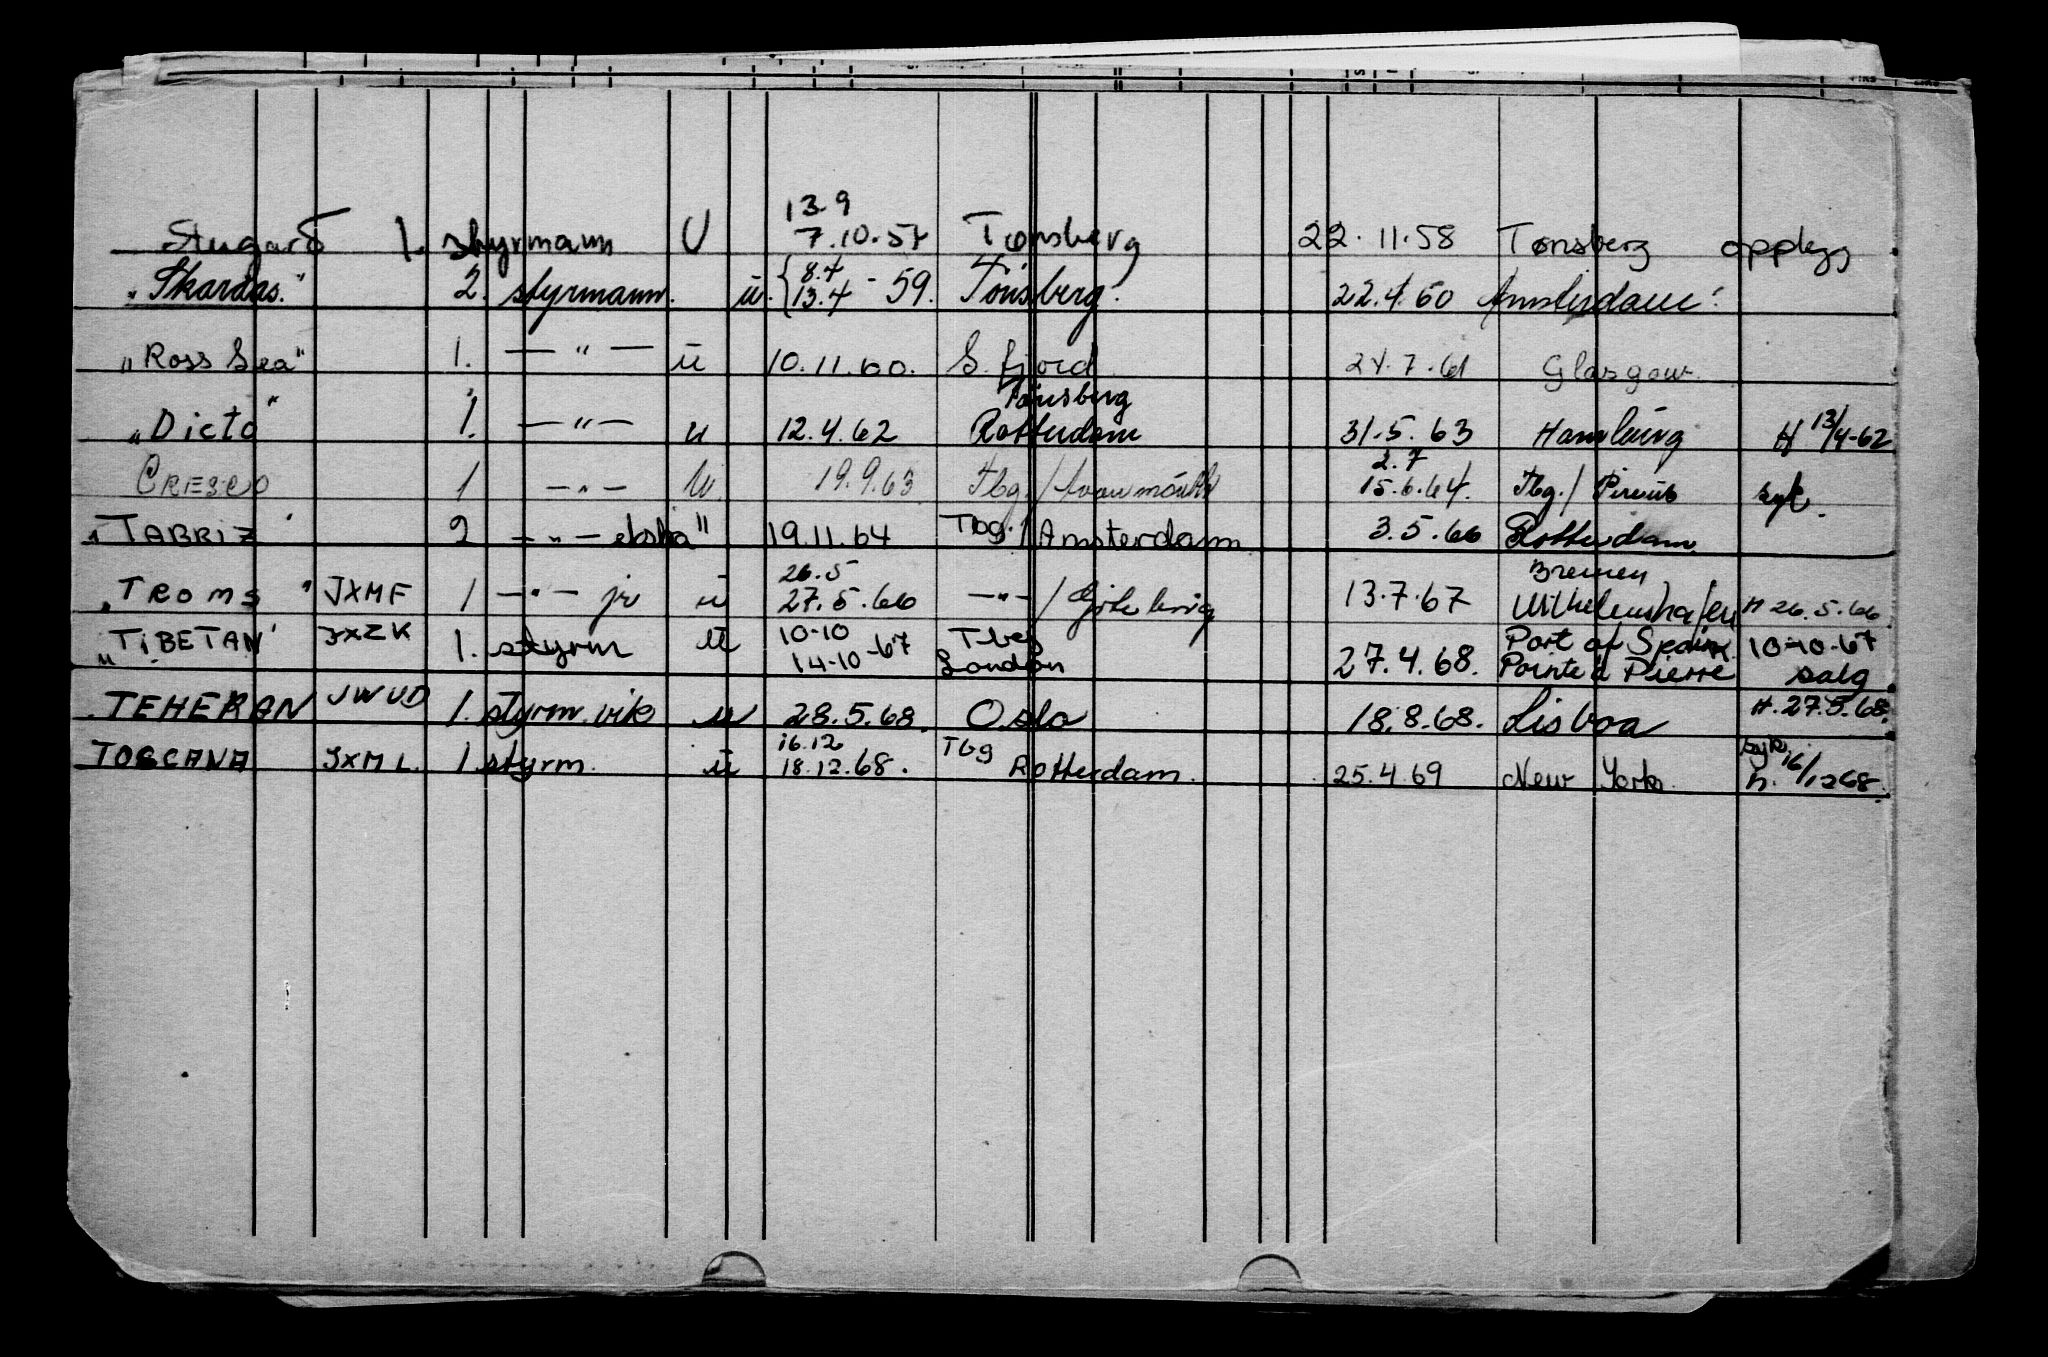 13.9
Stugard 1. styrmann U 7.10.57 Tønsberg 22.11.58 Tønsberg opplegg
"Skardas." 2. styrmann. u. { 8.4 13.4 - 59. Tönsberg. 22.4.60 Amsterdam.
"Ross Sea" 1. — " — u 10.11.60. S. fjord 24.7.61 Glasgow.
Tönsberg
"Dicto" 1. — " — u 12.4.62 Rotterdam 31.5.63 Hamburg H 13/4-62
2.7
CRESCO 1 — " — u 19.9.63 Tbg. / 15.6.64. Tbg. / Pireus syk.
"TABRIZ" 2 — " — ekstra " 19.11.64 Tbg. / Amsterdam 3.5.66 Rotterdam
26.5 Bremen
"TROMS" JXMF 1 — " — jr u 27.5.66 — " — / Göteborg 13.7.67 Wilhelmshafen H 26.5.66
"TIBETAN" JXZK 1. styrm u 10-10 Tbg Port of Spain 10-10-67
14-10-67 London 27.4.68. Pointe á Pierre salg
TEHERAN JWUD 1. styrm. vik u 28.5.68. Oslo 18.8.68. Lisboa H. 27.5.68.
16.12 Tbg syk
TOSCANA JXML 1. styrm. u 18.12.68. Rotterdam. 25.4.69 New York h. 16/12 68.